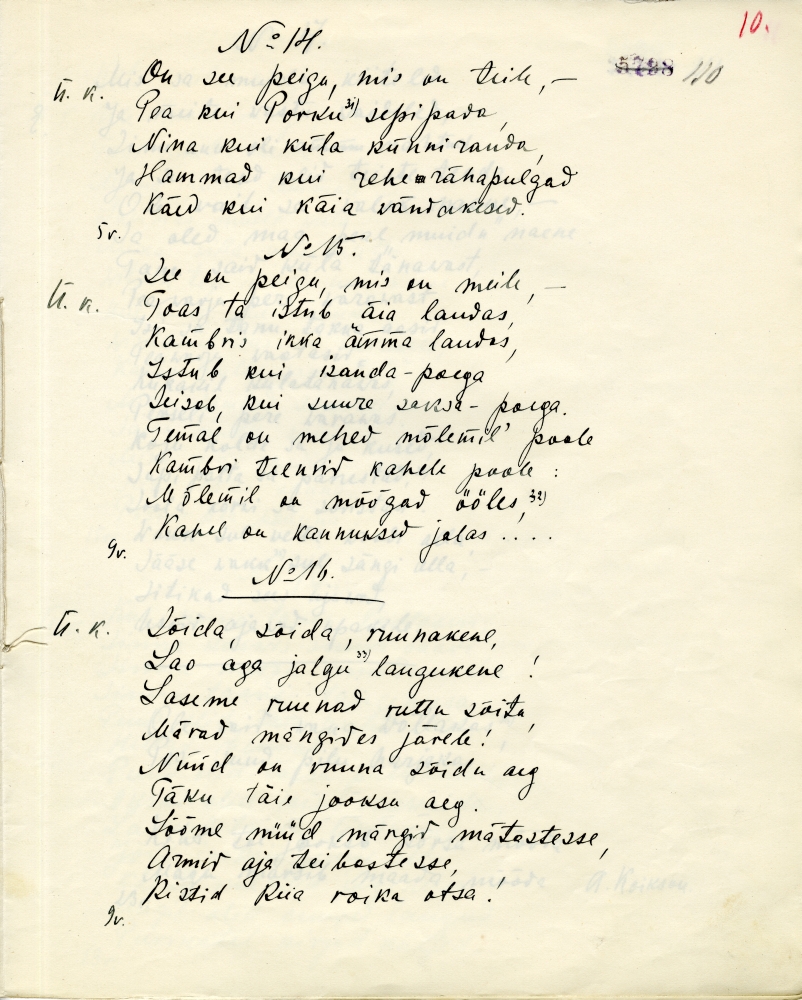 10.
5728 110
№ 14.
Ü. k. On see peigu, mis on teile, —
Pea kui Porku³¹⁾ sepipada,
Nina kui küla künniranda,
Hammad kui rehe rähapulgad
Käed kui käia vändakesed.
5v.
№ 15.
See on peigu, mis on meile, —
Ü. k. Toas ta istub äia laudas,
Kambris ikka ämma laudas,
Istub kui isanda-poega
Seisab, kui suure saksa-poega.
Temal on mehed mõlemil' poole
Kambri teenrid kahele poole :
Mõlemil on mõõgad vööles,³²⁾
Kahel on kannuksed jalas ....
9v.
№ 16.
Ü. k. Sõida, sõida, ruunakene,
Lao aga jalgu³³⁾ laugukene !
Laseme ruunad ruttu sõita,
Märad mängides järele!
Nüüd on ruuna sõidu aeg
Täku täie jooksu aeg.
Sõõme nüüd märgid mätastesse,
Armid aja teibastesse,
Ristid Riia roika otsa!
9v.